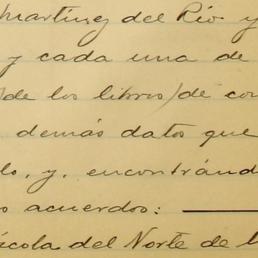 Martínez del Río y
y cada una de
de los libros de co
demás datos que
lo, y, encontránd
s acuerdos:
ícola del Norte de